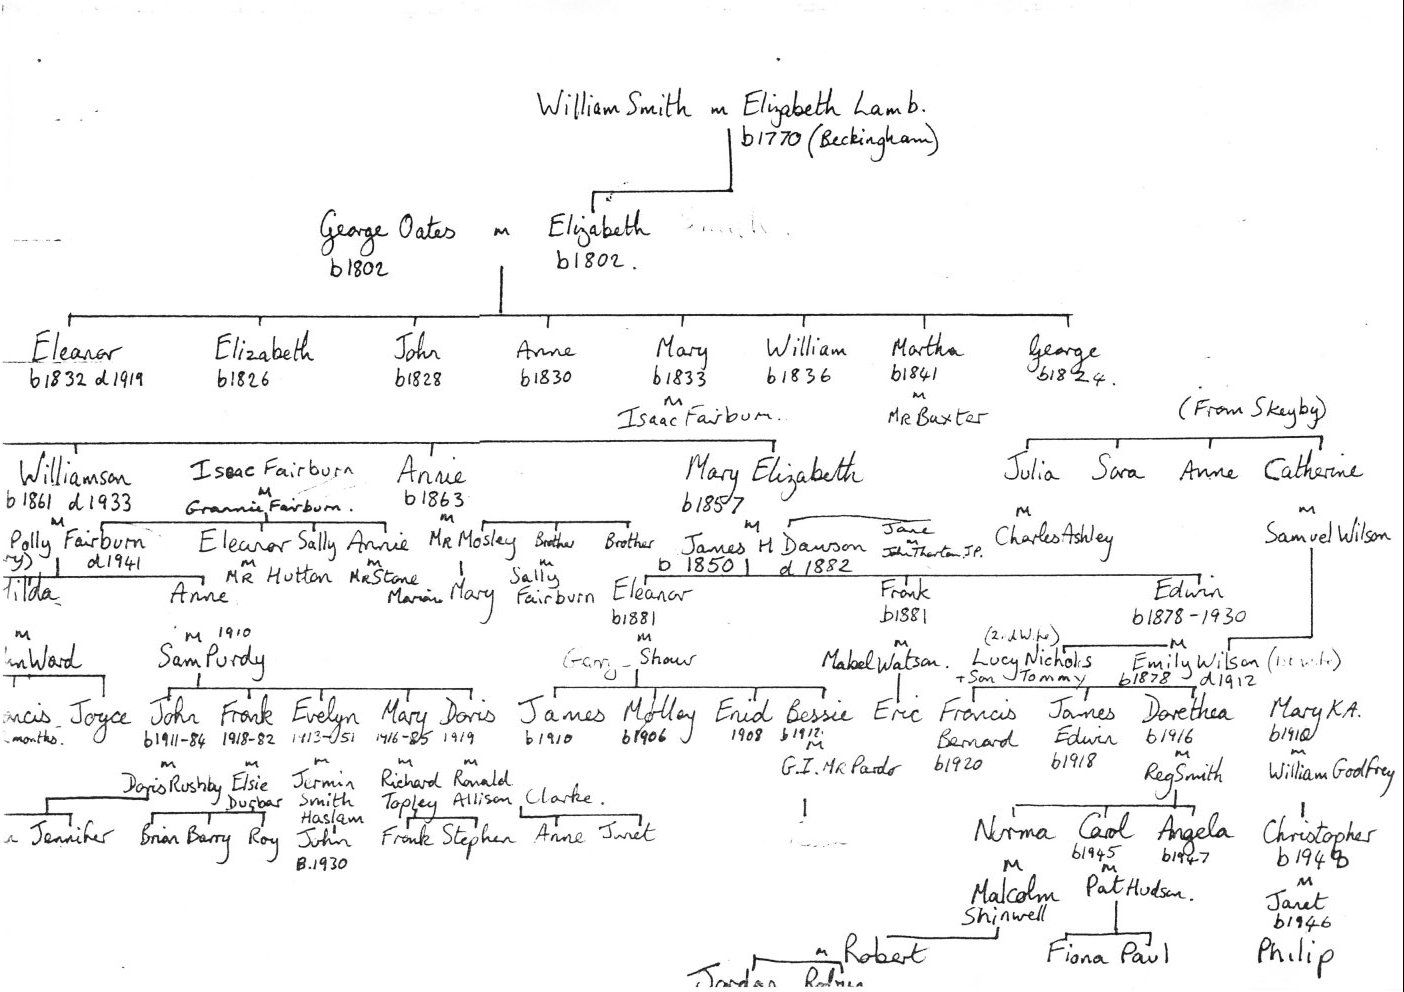 William Smith m Elizabeth Lamb.
b1770 (Beckingham)
George Oates m Elizabeth
b1802 b1802.
Eleanor Elizabeth John Anne Mary William Martha George
b1832 d1919 b1826 b1828 b1830 b1833 b1836 b1841 b1824.
m m
Isaac Fairburn. MR Baxter (From Skeyby)
Williamson Isaac Fairburn Annie Mary Elizabeth Julia Sara Anne Catherine
b1861 d1933 m b1863 b1857
Grannie Fairburn.
m m m m m
Polly Fairburn Eleanor Sally Annie MR Mosley Brother Brother James H Dawson Jane Charles Ashley Samuel Wilson
d1941 m m m m
John Thorton J.P.
b 1850 d 1882
Tilda Anne MR Hutton MR Stone Marian Mary Sally Fairburn Eleanor Frank Edwin
b1881 b1881 b1878-1930
m m 1910 m m (2nd Wife) m
Ward Sam Purdy Shaw Mabel Watson. Lucy Nicholls Emily Wilson (1st wife)
+ Son Tommy b1878 d1912
Joyce John Frank Evelyn Mary Doris James Molley Enid Bessie Eric Francis James Dorethea Mary K.A.
months. b1911-84 1918-82 1913-51 1916-85 1919 b1910 b1906 1908 b1912 Bernard Edwin b1916 b1910
b1920 b1918
m m m m m m m m
Doris Rushby Elsie Jermin Richard Ronald G.I. MR Pardo Reg Smith William Godfrey
Dugbar Smith Topley Allison Clarke.
Haslam
Jennifer Brian Barry Roy John Frank Stephen Anne Janet Norma Carol Angela Christopher
B.1930 b1945 b1947 b1948
m m m
Malcolm Pat Hudson. Janet
Shinwell b1946
m Robert Fiona Paul Philip
Jordan